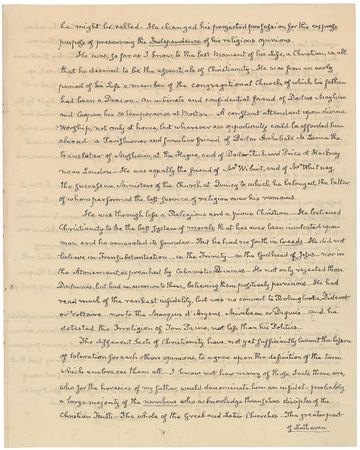 he might be called. He changed his projected profession, for the express
purpose of preserving the Independence of his religious opinions.
He was, so far as I know to the last moment of his Life, a Christian, in all
that he deemed to be the essentials of Christianity. He was from an early
period of his Life a member of the congregational Church, of which his father
had been a Deacon. An intimate and confidential friend of Doctors Mayhew
and Cooper, his contemporaries at Boston. A constant attendant upon divine
Worship, not only at home, but wherever an opportunity could be afforded him
abroad. a Parishioner and familiar friend of Doctor Archibald McLaine the
translator of Mosheim, at the Hague, and of Doctor Richard Price at Hackney
near London. He was equally the friend of Mr Wibird, and of Mr Whitney,
the successive Ministers of the Church at Quincy to which he belonged, the latter
of whom performed the last service of religion over his remains.
He was through Life a Religious and a pious Christian. He believed
Christianity to be the best System of morals that has ever been inculcated upon
man and he venerated its founder. But he had no faith in Creeds. He did not
believe in Transubstantiation. in the Trinity. in the Godhead of Jesus. nor in
the Atonement as preached by Calvinistic Divines. He not only rejected those
Doctrines, but had an aversion to them, believing them positively pernicious. He had
read much of the rankest infidelity, but was no convert to Bolingbroke, Diderot
or Voltaire. nor to the Marquis d'Argens, Mirabeau or Dupuis. and he
detested the Irreligion of Tom Paine, not less than his Politics.
The different Sects of Christianity have not yet sufficiently learnt the lesson
of toleration for each others opinions, to agree upon the definition of the term
which embraces them all. I know not how many of those Sects there are,
who for the heresies of my father, would denominate him an infidel. probably
a large majority of the numbers who acknowledge themselves disciples of the
Christian Faith. The whole of the Greek and Latin Churches. The greater part
of Lutheran